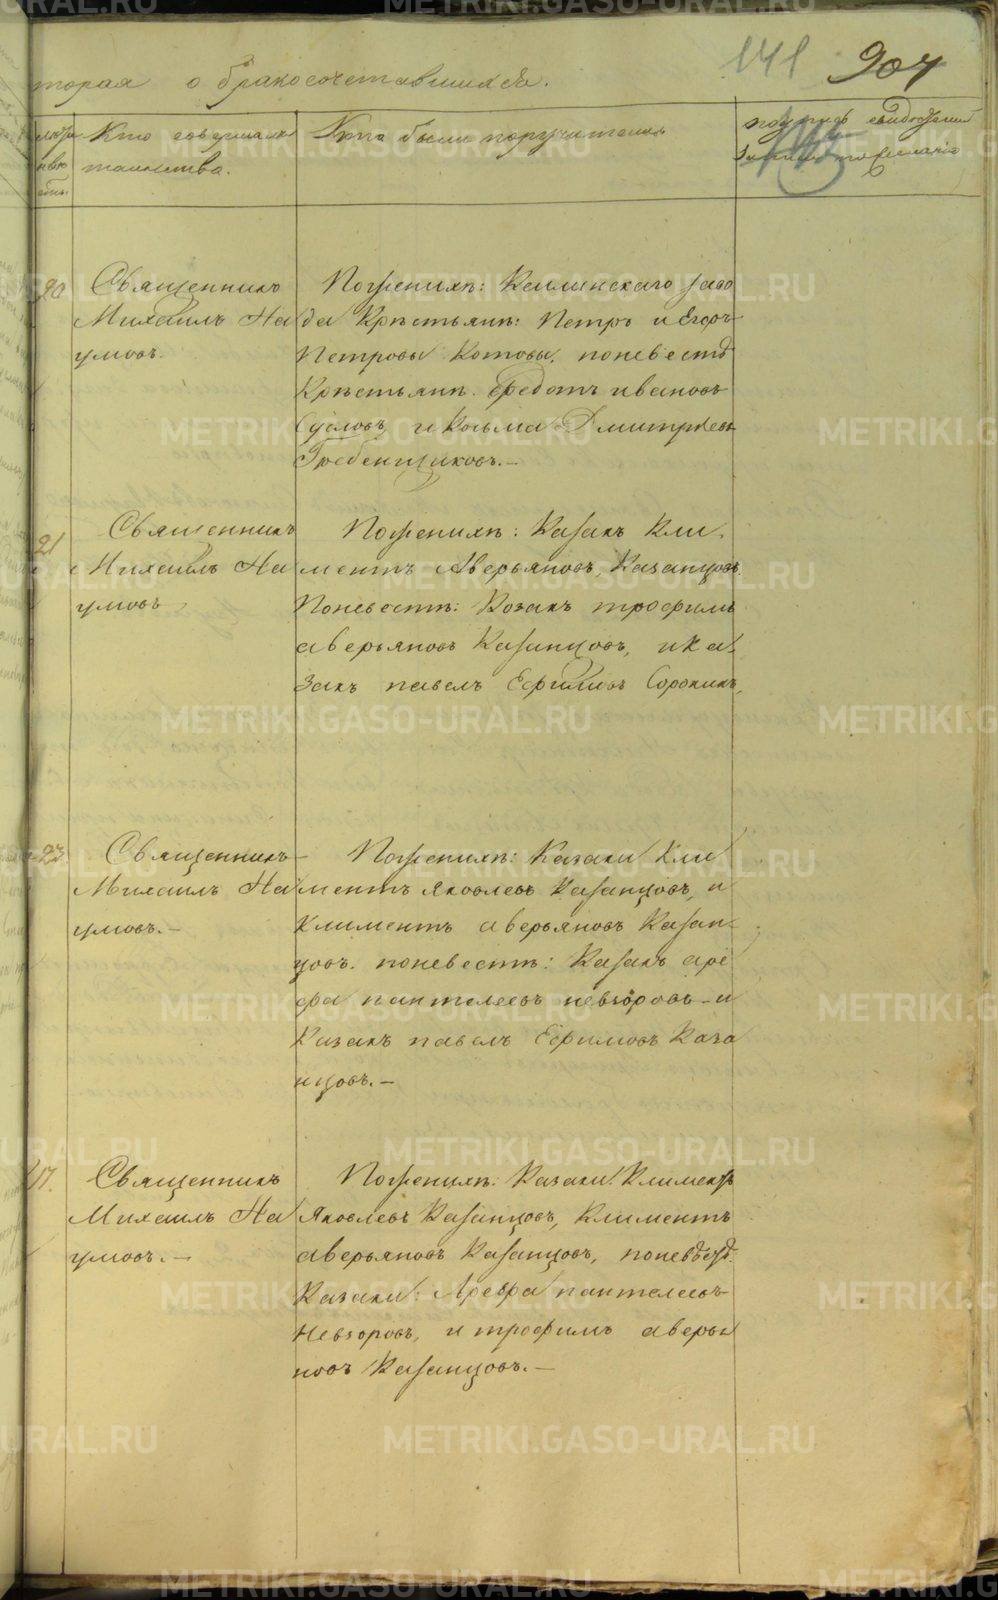 141 907
торая о бракосочетавшихся.
лѣта
невѣс
ты.
Кто совершалъ
таинства.
Кто были поручители
подписъ свидѣтелей
Записи по желанію
20
Священникъ
Михаилъ На
умовъ.
Поженихѣ: Каслинскаго заво
да Крестьяне: Петръ и Егоръ
Петровы Котовы, поневѣстѣ
Крестьяне. Федотъ ивановъ
Сусловъ и Козьма Дмитріевъ
Гребенщиковъ.—
21
Священникъ
Михаилъ На
умовъ
Поженихѣ: Казакъ Кли
ментъ Аверьяновъ Казанцовъ.
Поневестѣ: Козакъ трофимъ
аверьяновъ Казанцовъ, и ка
закъ павелъ Ефимовъ Сорокинъ,
23
Священникъ
Михаилъ На
умовъ.—
Поженихѣ: Казаки Кли
ментъ яковлевъ Казанцовъ, и
Климентъ аверьяновъ Казан-
цовъ. поневестѣ: Казакъ аре
фа пантелеевъ невзоровъ и
Казакъ павелъ Ефимовъ Каза
нцовъ.—
17.
Священникъ
Михаилъ На
умовъ.—
Поженихѣ: Казаки: Климентъ
Яковлевъ Казанцовъ, Климентъ
аверьяновъ Казанцовъ, поневѣстѣ.
Казаки: Арефа пантелеевъ
Невзоровъ, и трофимъ аверья
новъ Казанцовъ.—
METRIKI.GASO-URAL.RU